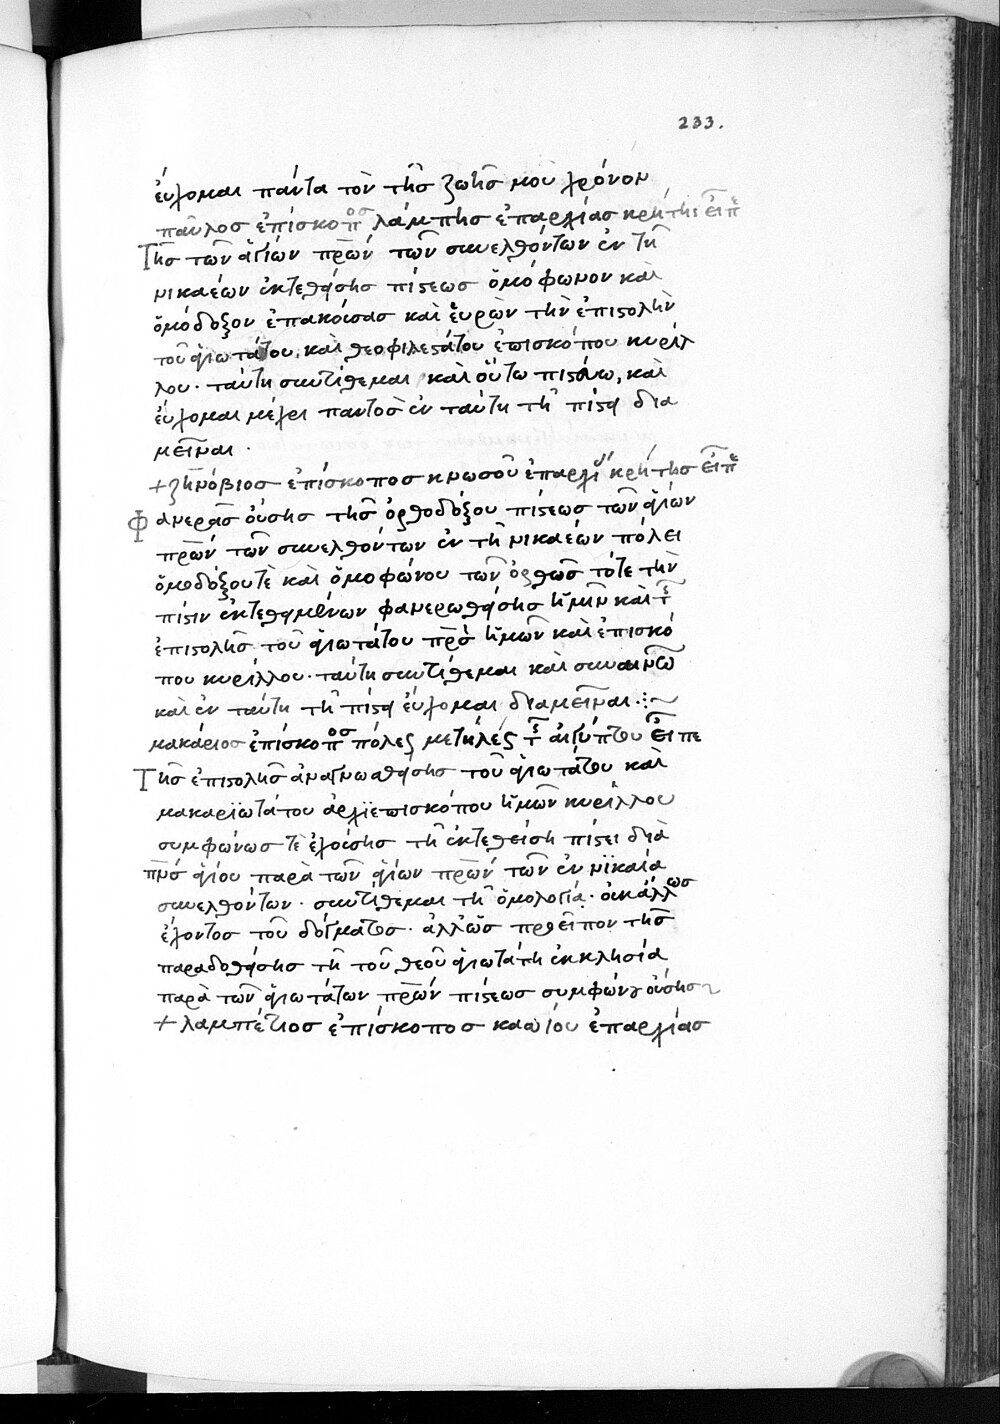 233.
ἐύχομαι πάντα τὸν τῆς ζωῆς μοὺ χρόνον
παῦλος ἐπίσκοπ̅ος λάμπης ἐπαρχίας κρήτης εἶπ̅ε
Τῆς τῶν ἁγίων πρ̅ων τῶν συνελθόντων ἐν τῆ
νικαέων ἐκτεθήσης πίστεως ὁμόφωνον καὶ
ὁμόδοξον ἐπακούσας καὶ ἑυρὼν τὴν ἐπιστολὴν
τοῦ ἁγιωτάτου, καὶ θεοφιλεστάτου ἐπισκόπου κυρίλ
λου · ταύτη συντίθεμαι καὶ οὕτω πιστέυω, καὶ
ἐύχομαι μέχρι παντὸς ἐν ταύτη τῆ πίστει δια
μεῖναι ·
+ ζηνόβιος ἐπίσκοπος κνωσοῦ ἐπαρχι κρήτης εἶπ̅ε
Φανερᾶς ὀύσης τῆς ὀρθοδόξου πίστεως τῶν ἁγίων
πρ̅ων τῶν συνελθόντων ἐν τῆ νικαέων πόλει
ὁμοδόξου τὲ καὶ ὁμοφώνου τῶν ὀρθῶς τότε τὴν
πίστιν ἐκτεθημένων φανερωθήσης ἡμῖν καὶ τ̅ῆς
ἐπιστολῆς τοῦ ἁγιωτάτου πρ̅ς ἡμῶν καὶ ἐπισκό
που κυρίλλου · ταύτη συντίθεμαι καὶ συναινῶ
καὶ ἐν ταύτη τῆ πίστει ἐύχομαι διαμεῖναι ·:~
μακάριος ἐπίσκοπ̅ος πόλεως μετήλεως τ̅ῆς αἰγύπτου εἶπε
Τῆς ἐπιστολῆς ἀναγνωσθήσης τοῦ ἁγιωτάτου καὶ
μακαρϊωτάτου ἀρχϊεπισκόπου ἡμῶν κυρίλλου
συμφώνως τὲ ἐχούσης τῆ ἐκτεθείση πίστει διὰ
πν̅ς ἁγίου παρὰ τῶν ἁγίων πρ̅ων τῶν ἐν νϊκαία
συνελθόντων · συντίθεμαι τῆ ὁμολογία · ὀυκ ἄλλως
ἔχοντος τοῦ δόγματος · ἀλλ᾽ ὡς προεῖπον τῆς
παραδοθήσης τῆ τοῦ θεοῦ ἁγιωτάτη ἐκκλησία
παρὰ τῶν ἁγιωτάτων πρ̅ων πίστεως συμφώνου ὀύσης ~
+ λαμπέτιος ἐπίσκοπος κασίου ἐπαρχίας